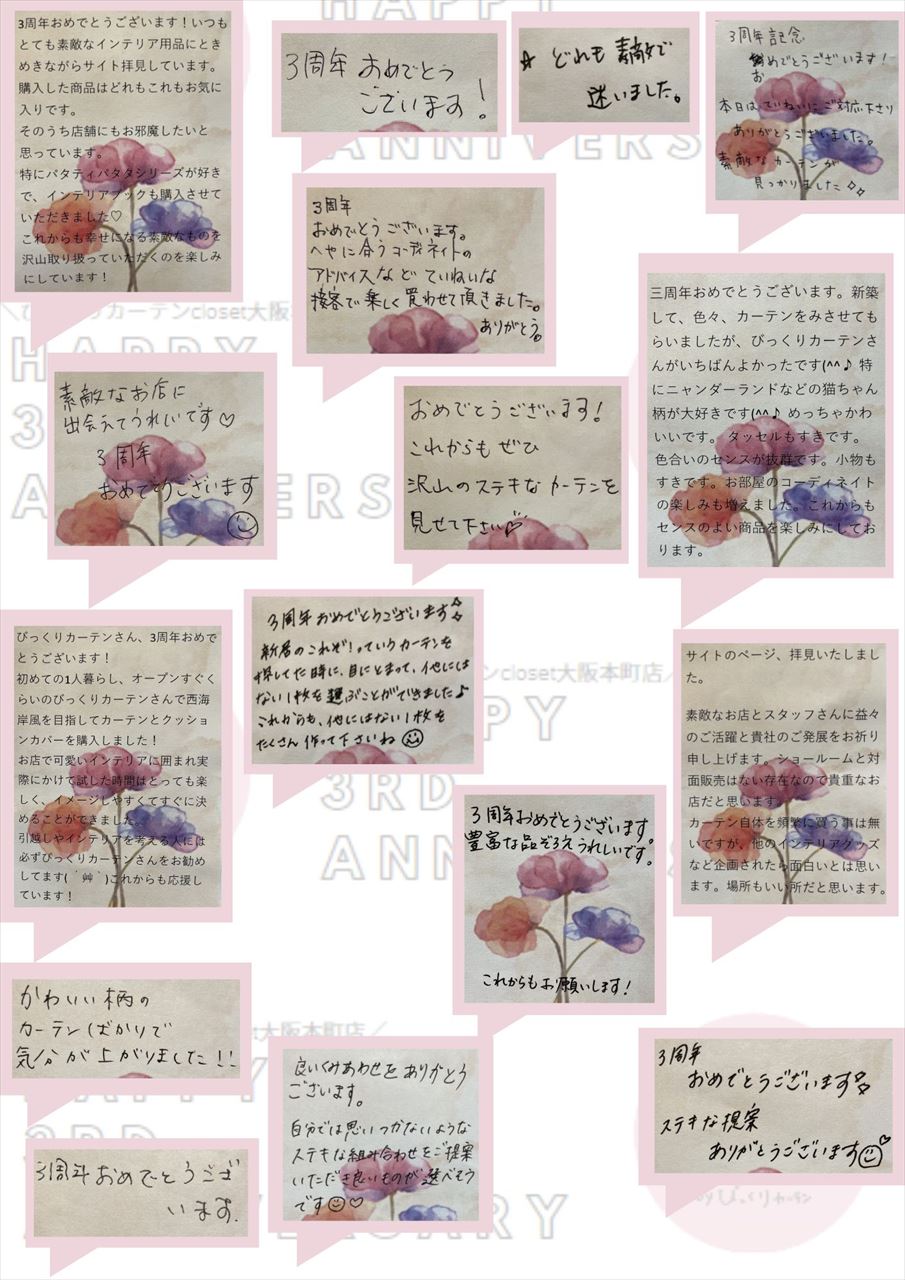 3周年おめでとうございます！いつも
とても素敵なインテリア用品にとき
めきながらサイト拝見しています。
購入した商品はどれもこれもお気に
入りです。
そのうち店舗にもお邪魔したいと
思っています。
特にパタティパタタシリーズが好き
で、インテリアブックも購入させて
いただきました♡
これからも幸せになる素敵なものを
沢山取り扱っていただくのを楽しみ
にしています！
3周年 おめでとう
ございます！
☆ どれも素敵で
迷いました。
3周年記念
おめでとうございます！
本日は ていねいに ご対応下さり
ありがとうございました。
素敵なカーテンが
見つかりました✧✧
3周年
おめでとうございます。
へやに合うコーディネイトの
アドバイスなど ていねいな
接客で楽しく買わせて頂きました。
ありがとう。
三周年おめでとうございます。新築
して、色々、カーテンをみさせても
らいましたが、びっくりカーテンさ
んがいちばんよかったです(^^♪ 特
にニャンダーランドなどの猫ちゃん
柄が大好きです(^^♪ めっちゃかわ
いいです。 タッセルもすきです。
色合いのセンスが抜群です。小物も
すきです。お部屋のコーディネイト
の楽しみも増えました。これからも
センスのよい商品を楽しみにしてお
ります。
素敵なお店に
出会えてうれしいです♡
3周年
おめでとうございます
おめでとうございます！
これからもぜひ
沢山のステキなカーテンを
見せて下さい♡
びっくりカーテンさん、3周年おめで
とうございます！
初めての1人暮らし、オープンすぐく
らいのびっくりカーテンさんで西海
岸風を目指してカーテンとクッショ
ンカバーを購入しました！
お店で可愛いインテリアに囲まれ実
際にかけて試した時間はとっても楽
しく、イメージしやすくてすぐに決
めることができました。
引越しやインテリアを考える人には
必ずびっくりカーテンさんをお勧め
してます( ˊ艸ˋ)これからも応援し
ています！
3周年おめでとうございます☆
新居のこれぞ！っていうカーテンを
探してた時に、目にとまって、他には
ない1枚を選ぶことができました♪
これからも、他にはない1枚を
たくさん作って下さいね
サイトのページ、拝見いたしまし
た。
素敵なお店とスタッフさんに益々
のご活躍と貴社のご発展をお祈り
申し上げます。ショールームと対
面販売はない存在なので貴重なお
店だと思います。
カーテン自体を頻繁に買う事は無
いですが、他のインテリアグッズ
など企画されたら面白いとは思い
ます。場所もいい所だと思います。
3周年おめでとうございます。
豊富な品ぞろえうれしいです。
これからもお願いします！
かわいい柄の
カーテンばかりで
気分が上がりました！！
良いくみあわせを ありがとう
ございます。
自分では思いつかないような
ステキな組み合わせをご提案
いただき良いものが選べそう
です♡
3周年
おめでとうございます
ステキな提案
ありがとうございます♡
3周年おめでとうござ
います.
HAPPY
3RD
ANNIVERSARY
closet大阪本町店／
by びっくりカーテン